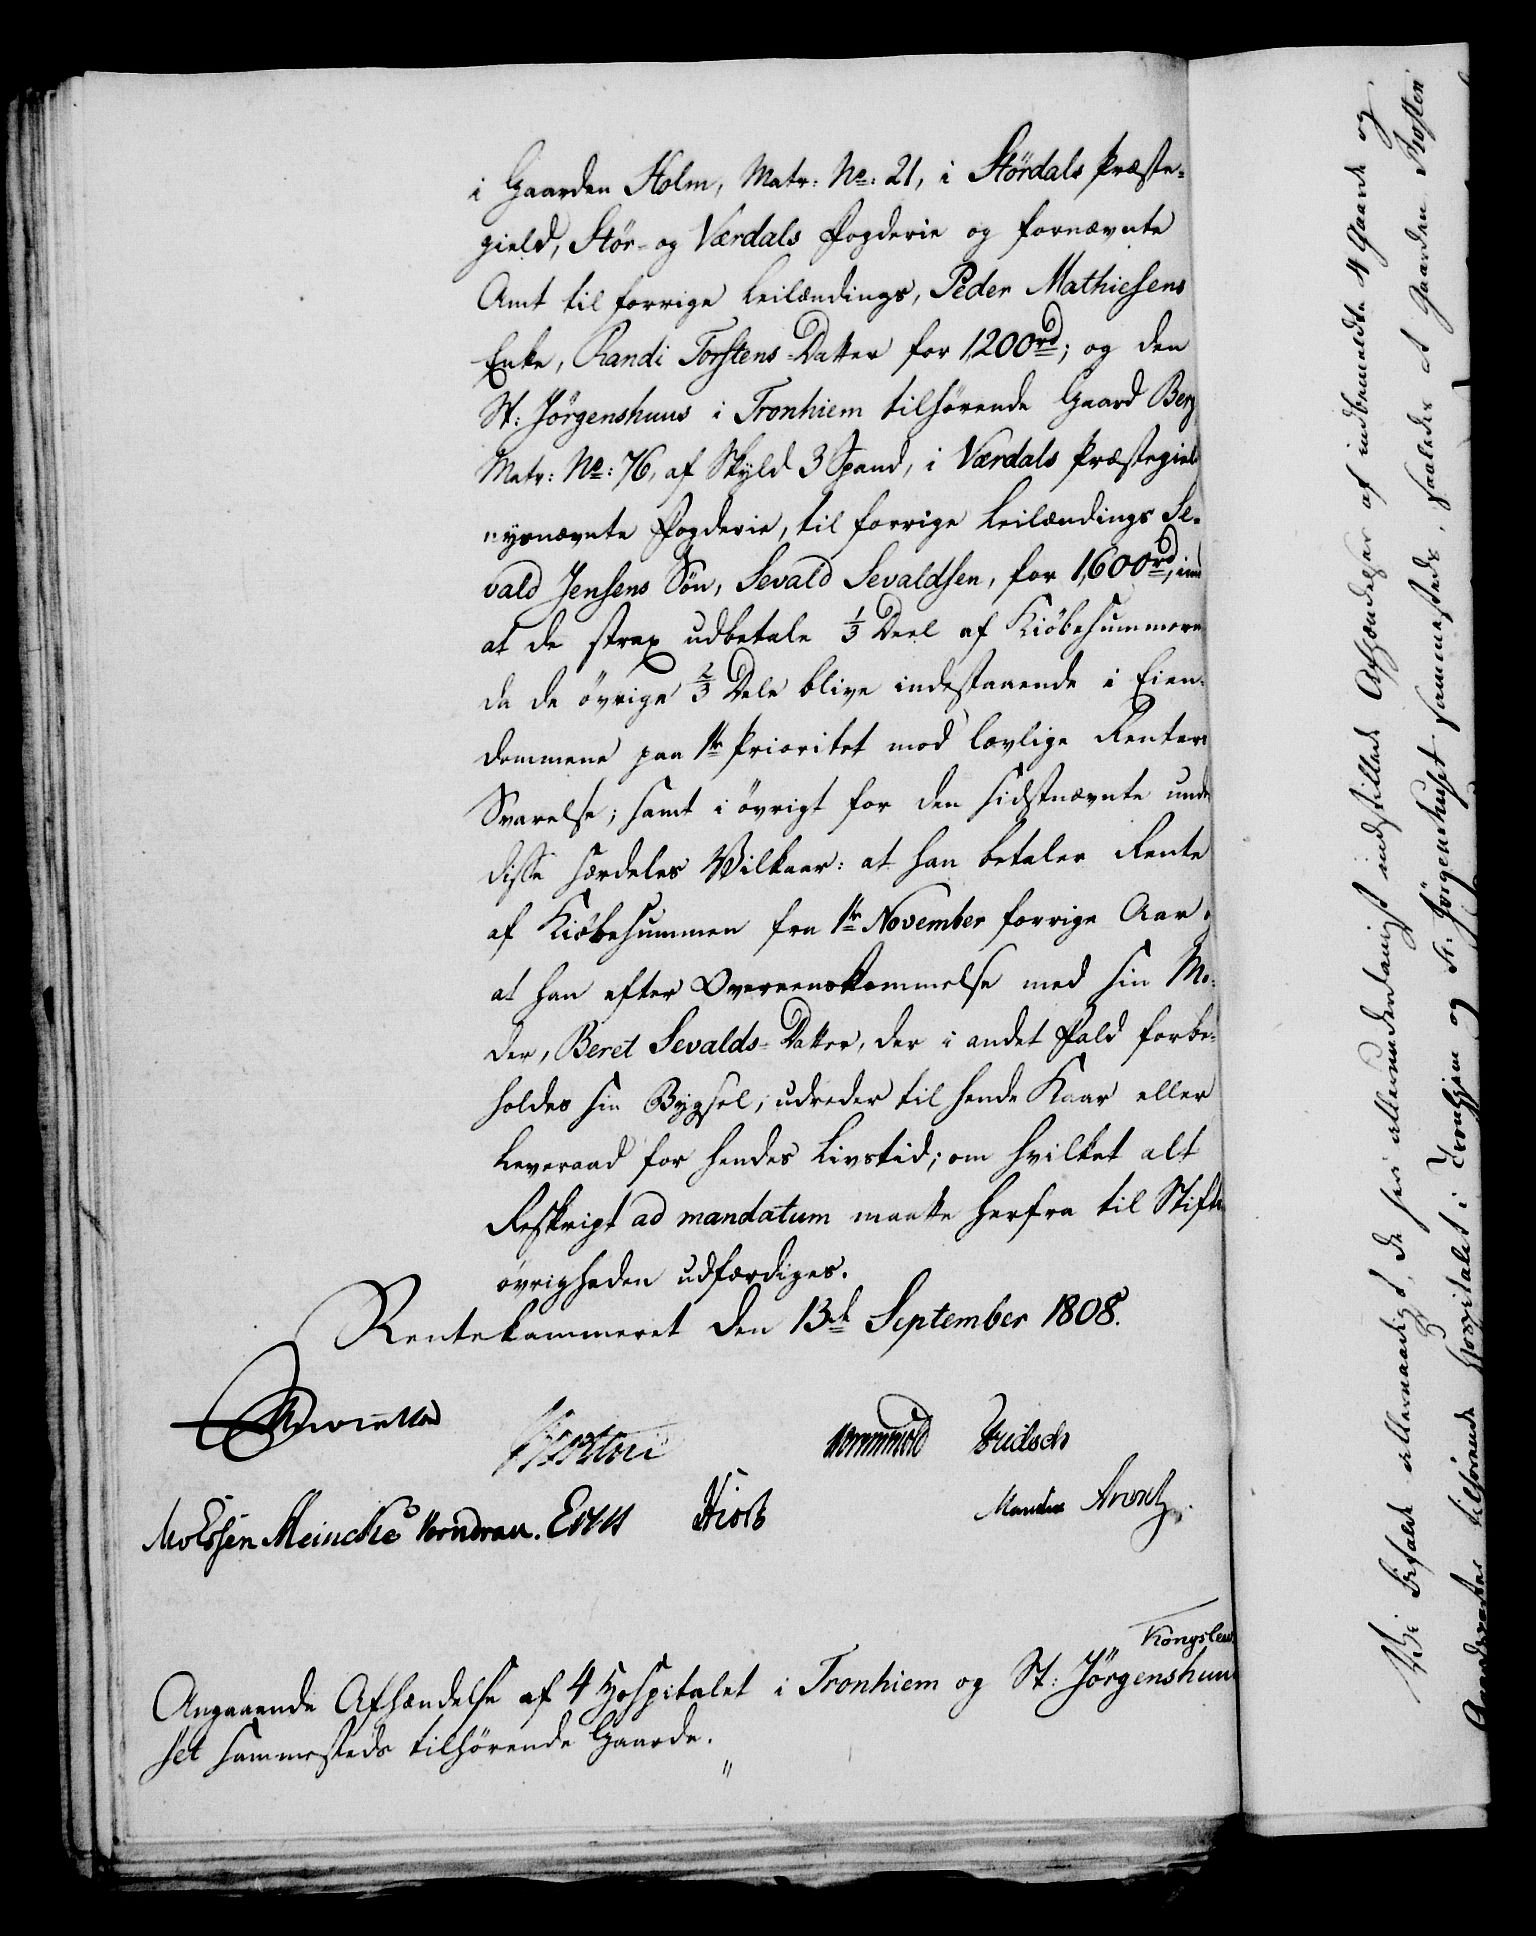 i Gaarden Holm, Matr: No: 21, i Stördals Præste-
gield, Stör- og Værdals Fogderie og fornævnte
Amt til forrige Leilændings, Peder Mathiesens
Enke, Randi Torstens-Datter for 1200 rd; og den
St: Jörgenshuus i Tronhiem tilhörende Gaard Berg
Matr: No: 76, af Skyld 3 Spand, i Værdals Præstegield
nysnævnte Fogderie, til forrige Leilændings Se-
vald Jensens Sön, Sevald Sevaldsen, for 1,600 rd,
at de strax udbetale 1/3 Deel af Kiöbesummerne
da de övrige 2/3 Dele blive indestaaende i Eien-
dommene paa 1te Prioritet mod lovlige Renters
Svarelse; samt i övrigt for den sidstnævnte under
disse særdeles Vilkaar: at han betaler Rente
af Kiöbesummen fra 1te November forrige Aar,
at han efter Overeenskommelse med sin Mo-
der, Beret Sevalds-Datter, der i andet Fald forbe-
holdes sin Bygsel, udreder til hende Kaar eller
Leveraad for hendes Livstid; om hvilket alt
Reskript ad mandatum maatte herfra til Stifts
övrigheden udfærdiges.
Rentekammeret den 13de September 1808.
Wormskiold Fridsch
Meincke Vorndran. Hiort Arentz
Kongslew.
Angaaende Afhændelse af 4 Hospitalet i Tronhiem og St: Jörgenshuu-
set sammesteds tilhörende Gaarde.
Vi bifalde allernaadigst, de her allerunderdanigst indstillede Afhændelser af indbemeldte 4 Gaarde og
tilhörende Hospitalet i Tronhjem og St. Jörgenshuset sammesteds, saaledes at Gaarden Rosten